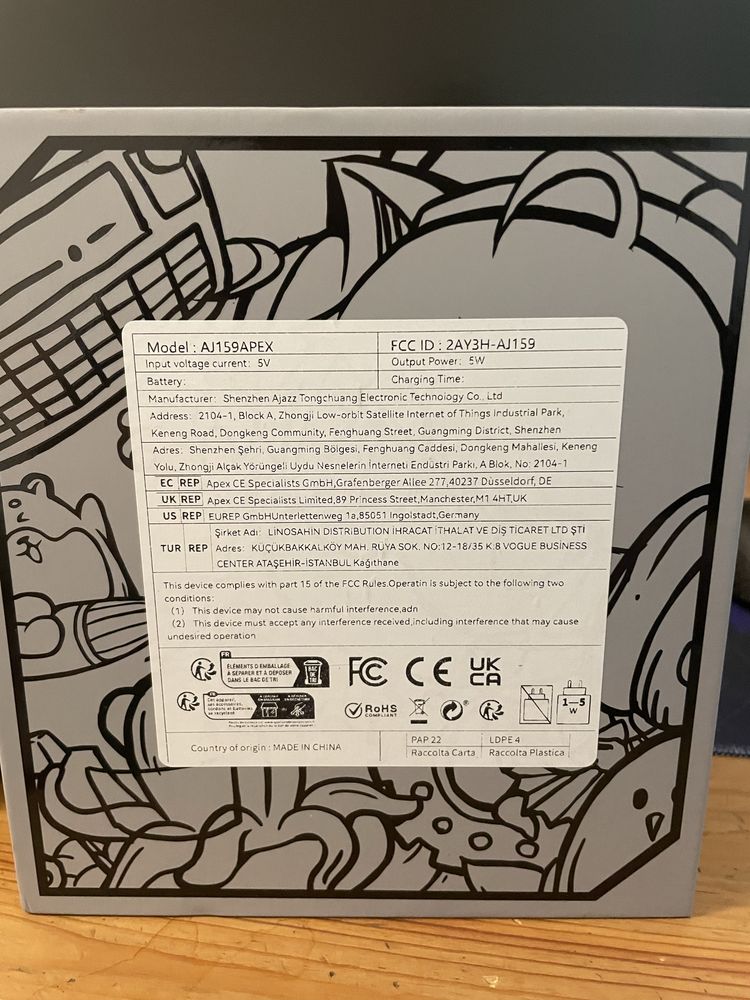 Model : AJ159APEX
FCC ID : 2AY3H-AJ159
Input voltage current: 5V
Output Power: 5W
Battery:
Charging Time:
Manufacturer: Shenzhen Ajazz Tongchuang Electronic Technology Co., Ltd
Address: 2104-1, Block A, Zhongji Low-orbit Satellite Internet of Things Industrial Park,
Keneng Road, Dongkeng Community, Fenghuang Street, Guangming District, Shenzhen
Adres: Shenzhen Şehri, Guangming Bölgesi, Fenghuang Caddesi, Dongkeng Mahallesi, Keneng
Yolu, Zhongji Alçak Yörüngeli Uydu Nesnelerin İnterneti Endüstri Parkı, A Blok, No: 2104-1
EC REP Apex CE Specialists GmbH,Grafenberger Allee 277,40237 Düsseldorf, DE
UK REP Apex CE Specialists Limited,89 Princess Street,Manchester,M1 4HT,UK
US REP EUREP GmbHUnterlettenweg 1a,85051 Ingolstadt,Germany
TUR REP
Şirket Adı: LİNOSAHİN DISTRIBUTİON İHRACAT İTHALAT VE DİŞ TİCARET LTD ŞTİ
Adres: KÜÇÜKBAKKALKÖY MAH. RUYA SOK. NO:12-18/35 K:8 VOGUE BUSINESS
CENTER ATAŞEHİR-İSTANBUL Kağıthane
This device complies with part 15 of the FCC Rules.Operatin is subject to the following two
conditions:
(1) This device may not cause harmful interference,adn
(2) This device must accept any interference received,including interference that may cause
undesired operation
FR
ÉLÉMENTS D'EMBALLAGE
À SÉPARER ET À DÉPOSER
DANS LE BAC DE TRI
BAC
DE
TRI
FC CE UK
CA
RoHS
COMPLIANT
1—5
W
Country of origin : MADE IN CHINA
PAP 22
LDPE 4
Raccolta Carta
Raccolta Plastica